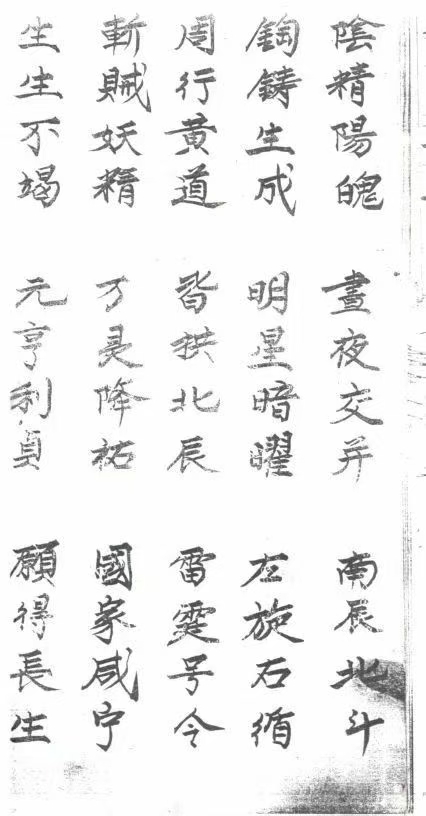 陰精陽魄 晝夜交并 南辰北斗
鋾鑄生成 明星暗曜 左旋右循
周行黄道 皆拱北辰 雷霆号令
斬賊妖精 万灵降祐 國家咸宁
生生不竭 元亨利貞 願得長生